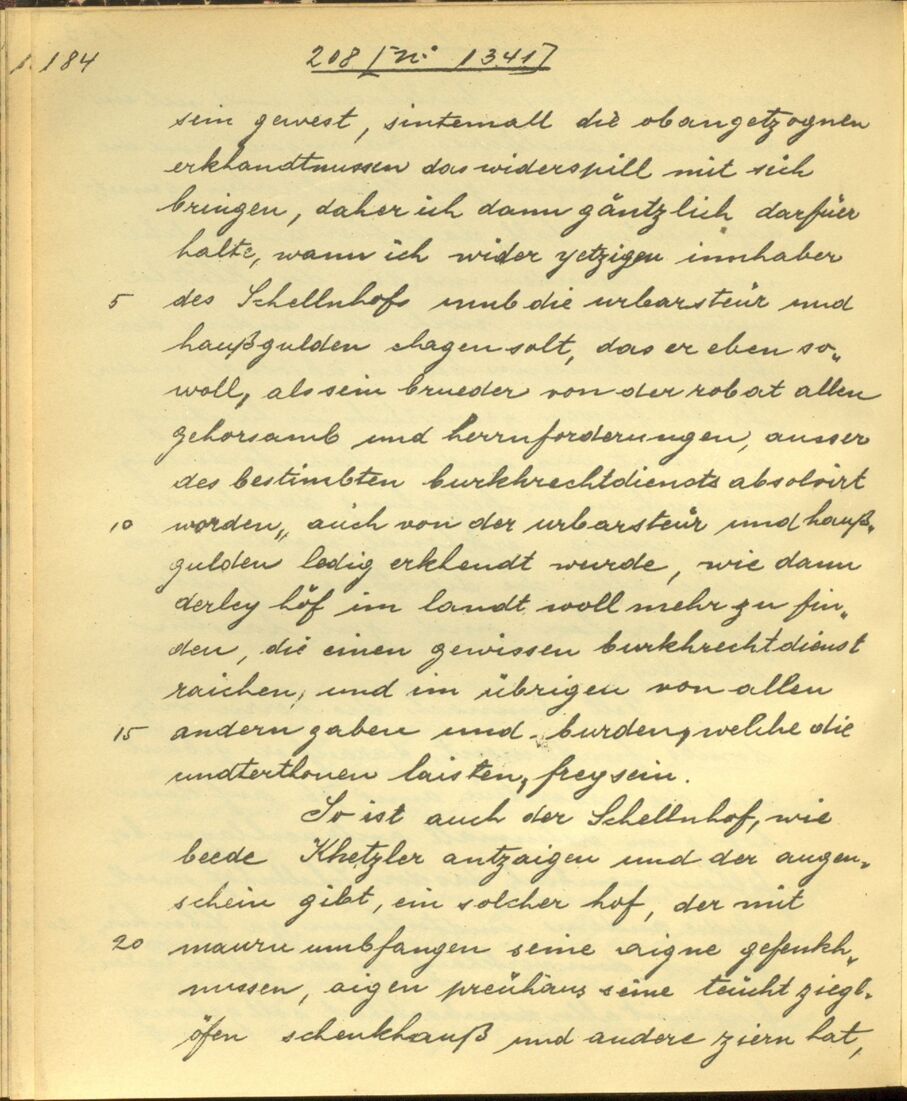 1. 184
208 [Nr. 1341]
sein gewest, sintemall die obangetzognen
erkhandtnussen das widerspill mit sich
bringen, daher ich dann gäntzlich darfüer
halte, wann ich wider yetzigen innhaber
5 des Schellnhofs umb die urbarsteür und
haußgulden clagen solt, das er eben so„
woll, als sein brueder von der robat allen
gehorsamb und herrnforderungen, ausser
des bestimbten burkhrechtdiensts absolvirt
10 worden, auch von der urbarsteür und hauß„
gulden ledig erkhendt wurde, wie dann
derley höf im landt woll mehr zu fin„
den, die einen gewissen burkhrechtdienst
raichen, und im übrigen von allen
15 andern gaben und burden, welche die
undterthonen laisten, frey sein.
So ist auch der Schellnhof, wie
beede Khetzler antzaigen und der augen„
schein gibt, ein solcher hof, der mit
20 maurn umbfangen seine aigne gefenkh„
nussen, aigen preühaus seine teücht ziegl„
öfen schenkhauß und andere ziern hat,